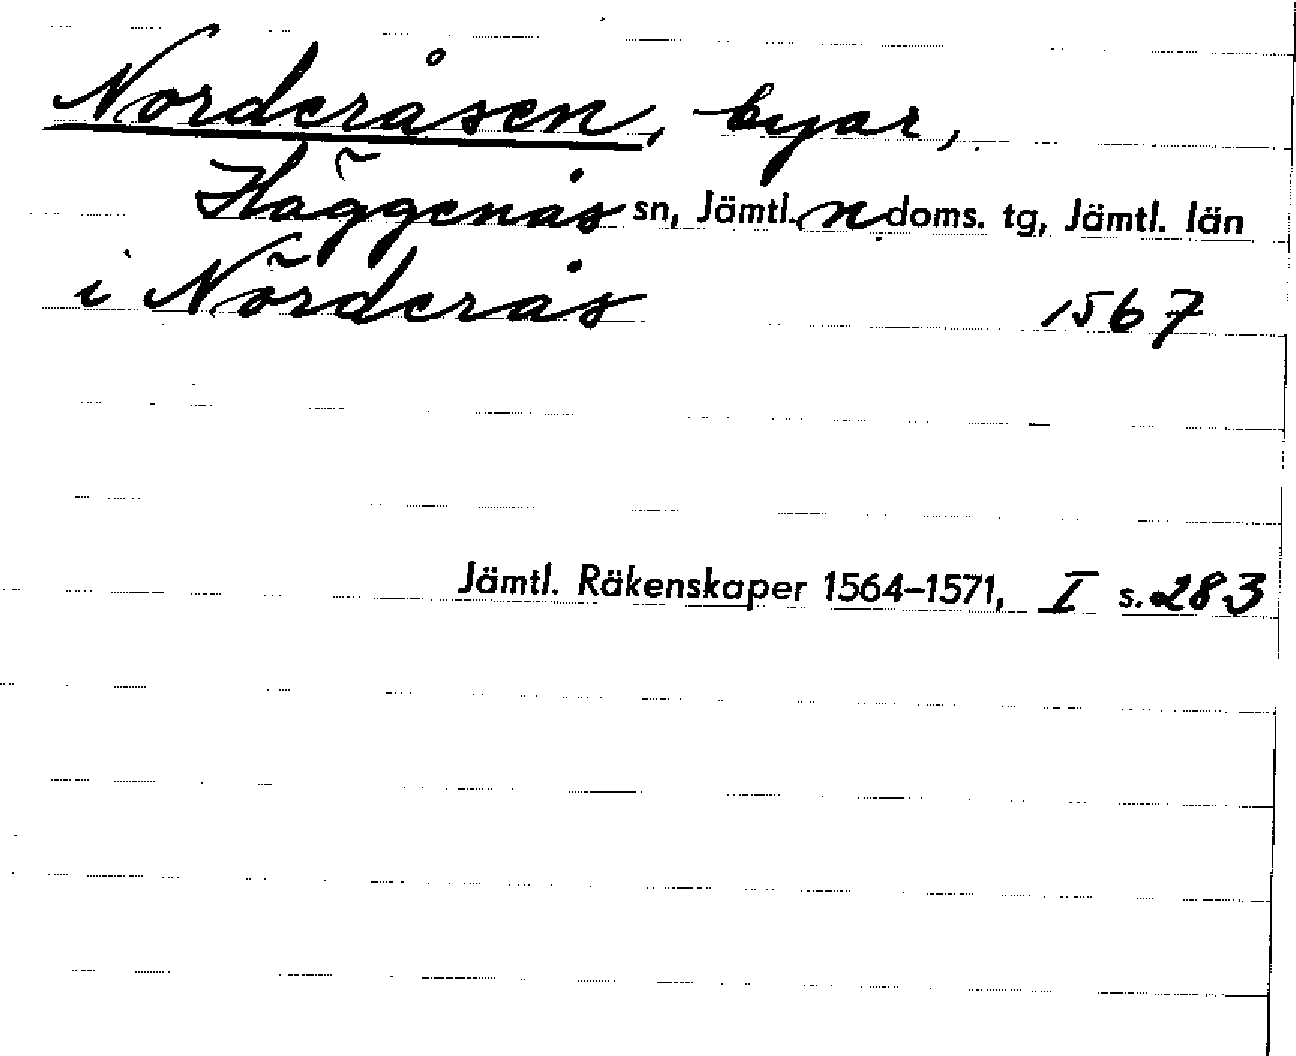 Norderåsen, byar,
Häggenås sn, Jämtl. n doms. tg, Jämtl. län
i Nörderås 1567
Jämtl. Räkenskaper 1564–1571, I s. 283